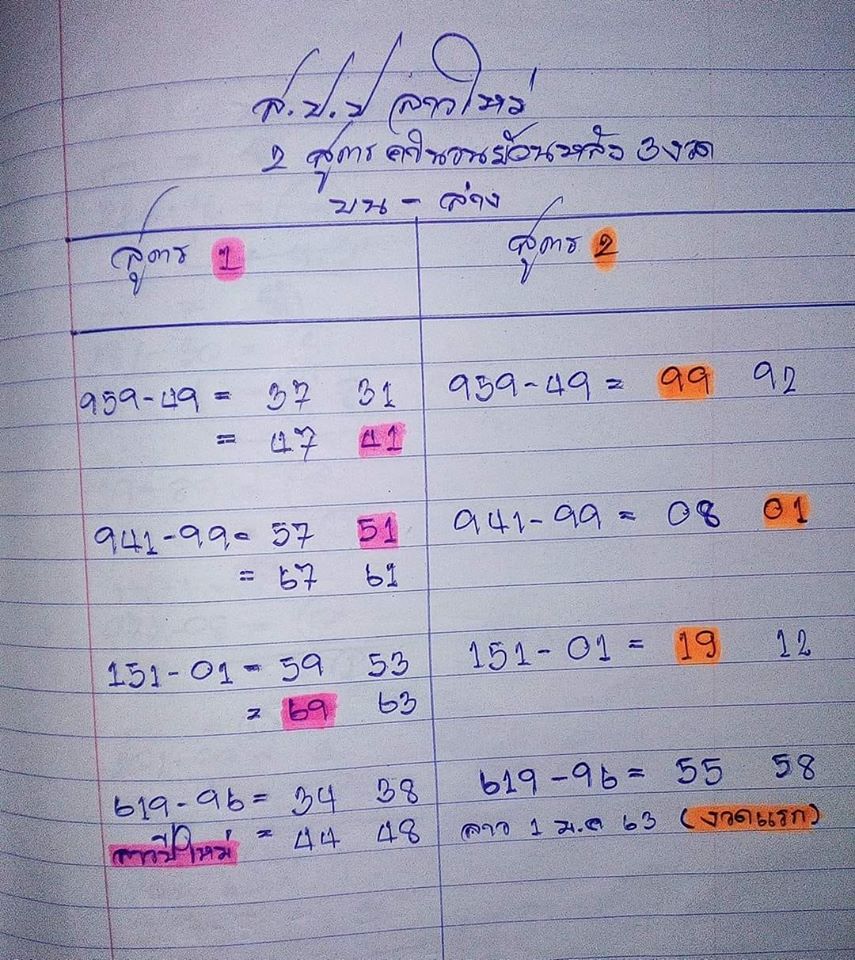 ส.ป.ป ลาวใหม่
2 สูตร คำนวนย้อนหลัง 3 งวด
บน - ล่าง
สูตร 1 สูตร 2
959-49 = 37 31 959-49 = 99 92
= 47 41
941-99 = 57 51 941-99 = 08 01
= 67 61
151-01 = 59 53 151-01 = 19 12
= 69 63
619-96 = 34 38 619-96 = 55 58
ลาวปีใหม่ = 44 48 ลาว 1 ม.ค 63 (งวดแรก)